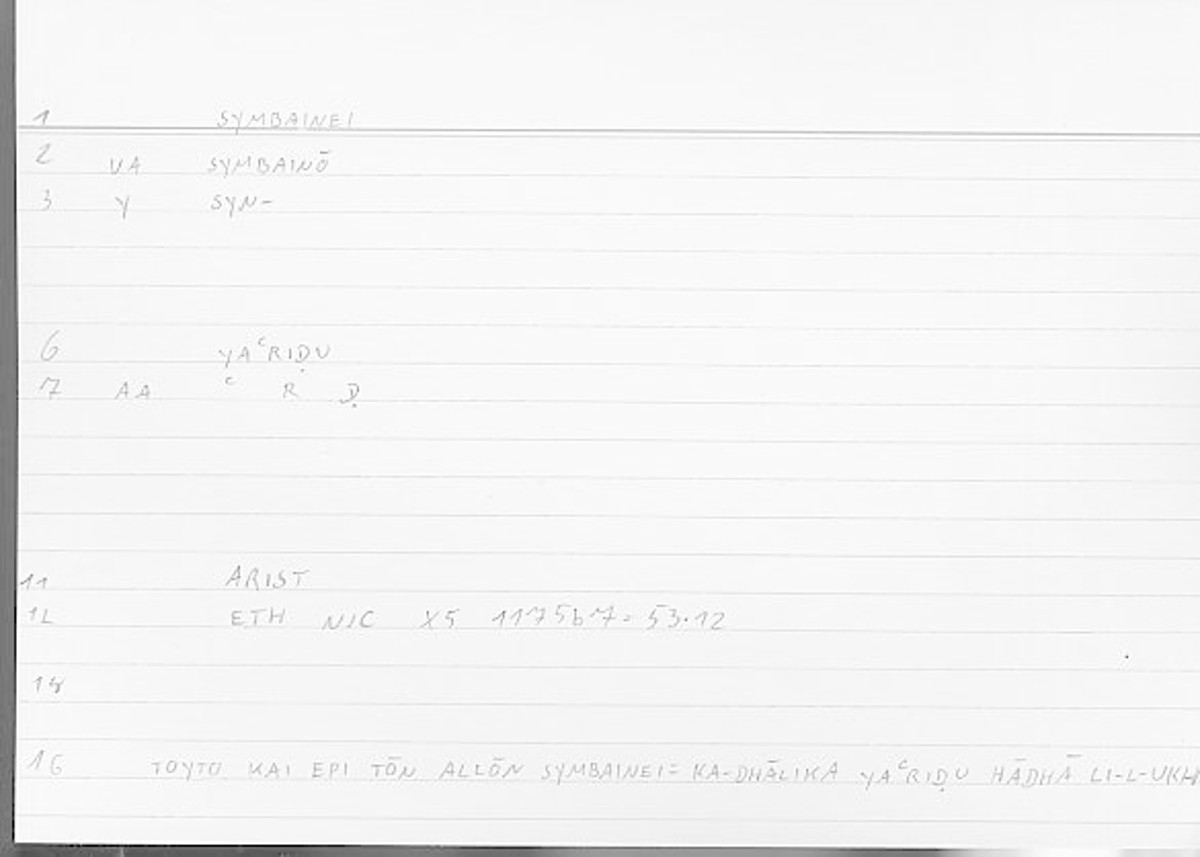 1 SYMBAINEI
2 VA SYMBAINŌ
3 Y SYN-
6 YAᶜRIḌU
7 AA ᶜ R Ḍ
11 ARIST
12 ETH NIC X5 1175b7 = 53.12
15
16 TOYTO KAI EPI TŌN ALLŌN SYMBAINEI = KA-DHĀLIKA YAᶜRIḌU HĀDHĀ LI-L-UKH